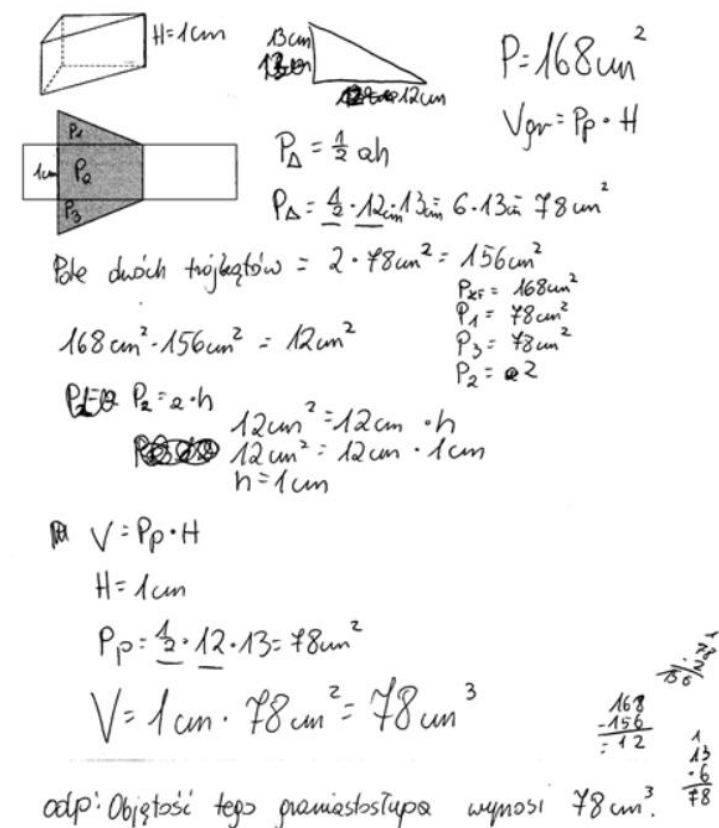 H=1cm
13cm
12cm
P=168cm²
Vgr=Pp·H
P1
1cm P2
P3
P△=½ah
P△=½·12cm·13cm=6·13cm=78cm²
Pole dwóch trójkątów = 2·78cm²=156cm²
168cm²-156cm²=12cm²
PżF=168cm²
P1=78cm²
P3=78cm²
P2=2
P2=a·h
12cm²=12cm·h
12cm²=12cm·1cm
h=1cm
V=Pp·H
H=1cm
Pp=½·12·13=78cm²
V=1cm·78cm²=78cm³
1
78
·2
156
168
-156
=12
1
13
·6
78
odp: Objętość tego graniastosłupa wynosi 78cm³.